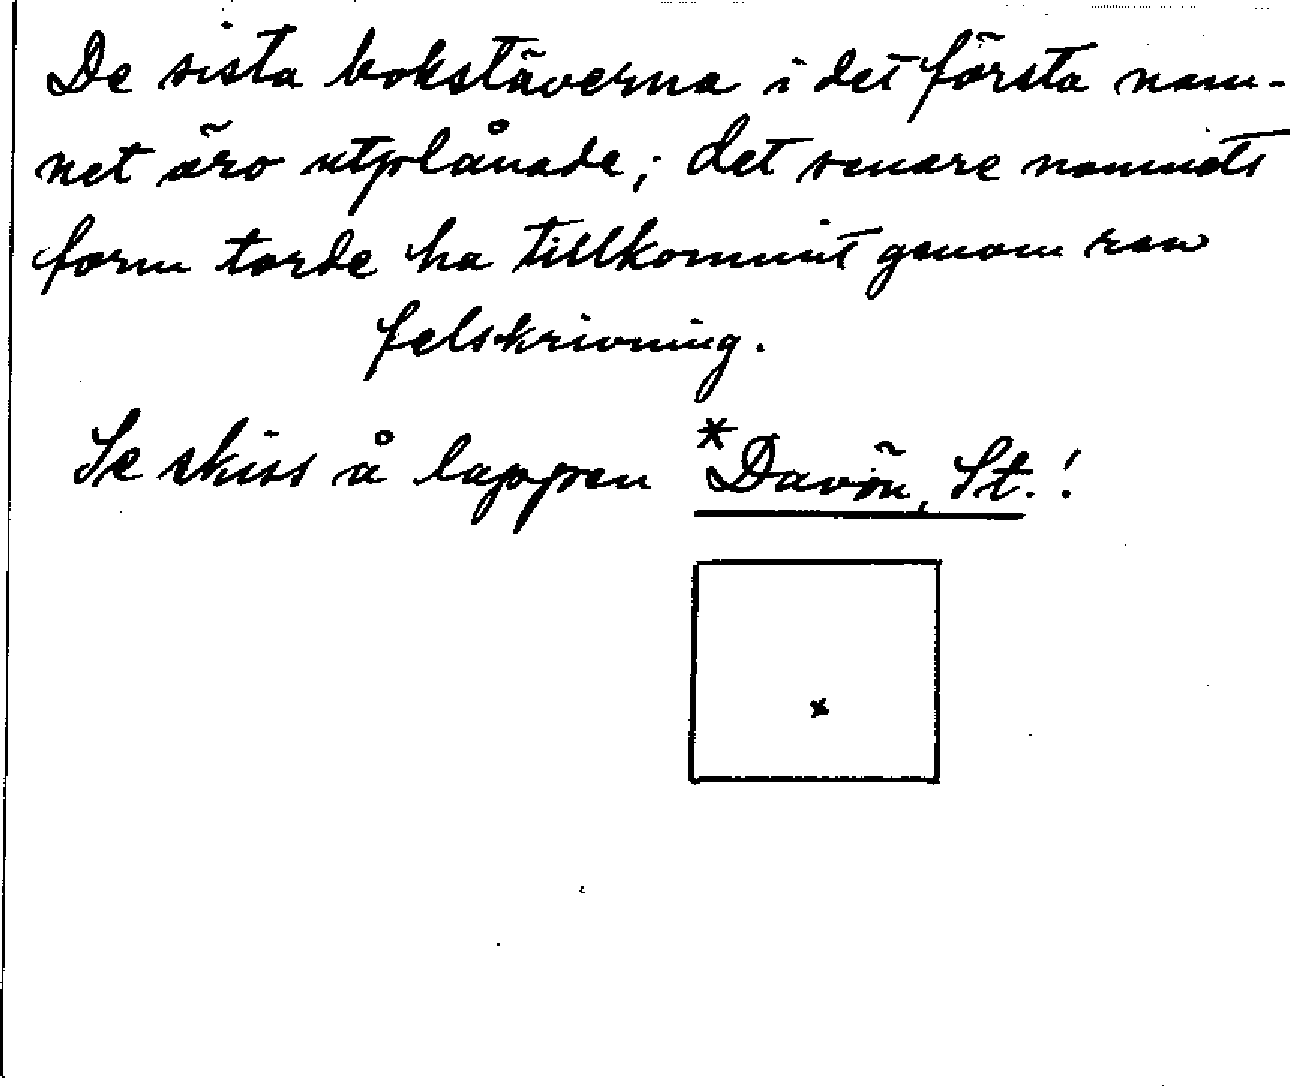 De sista bokstäverna i det första nam-
net äro utplånade; det senare namnets
form torde ha tillkommit genom ren
felskrivning.
Se skiss å lappen *Davön, St.!
x